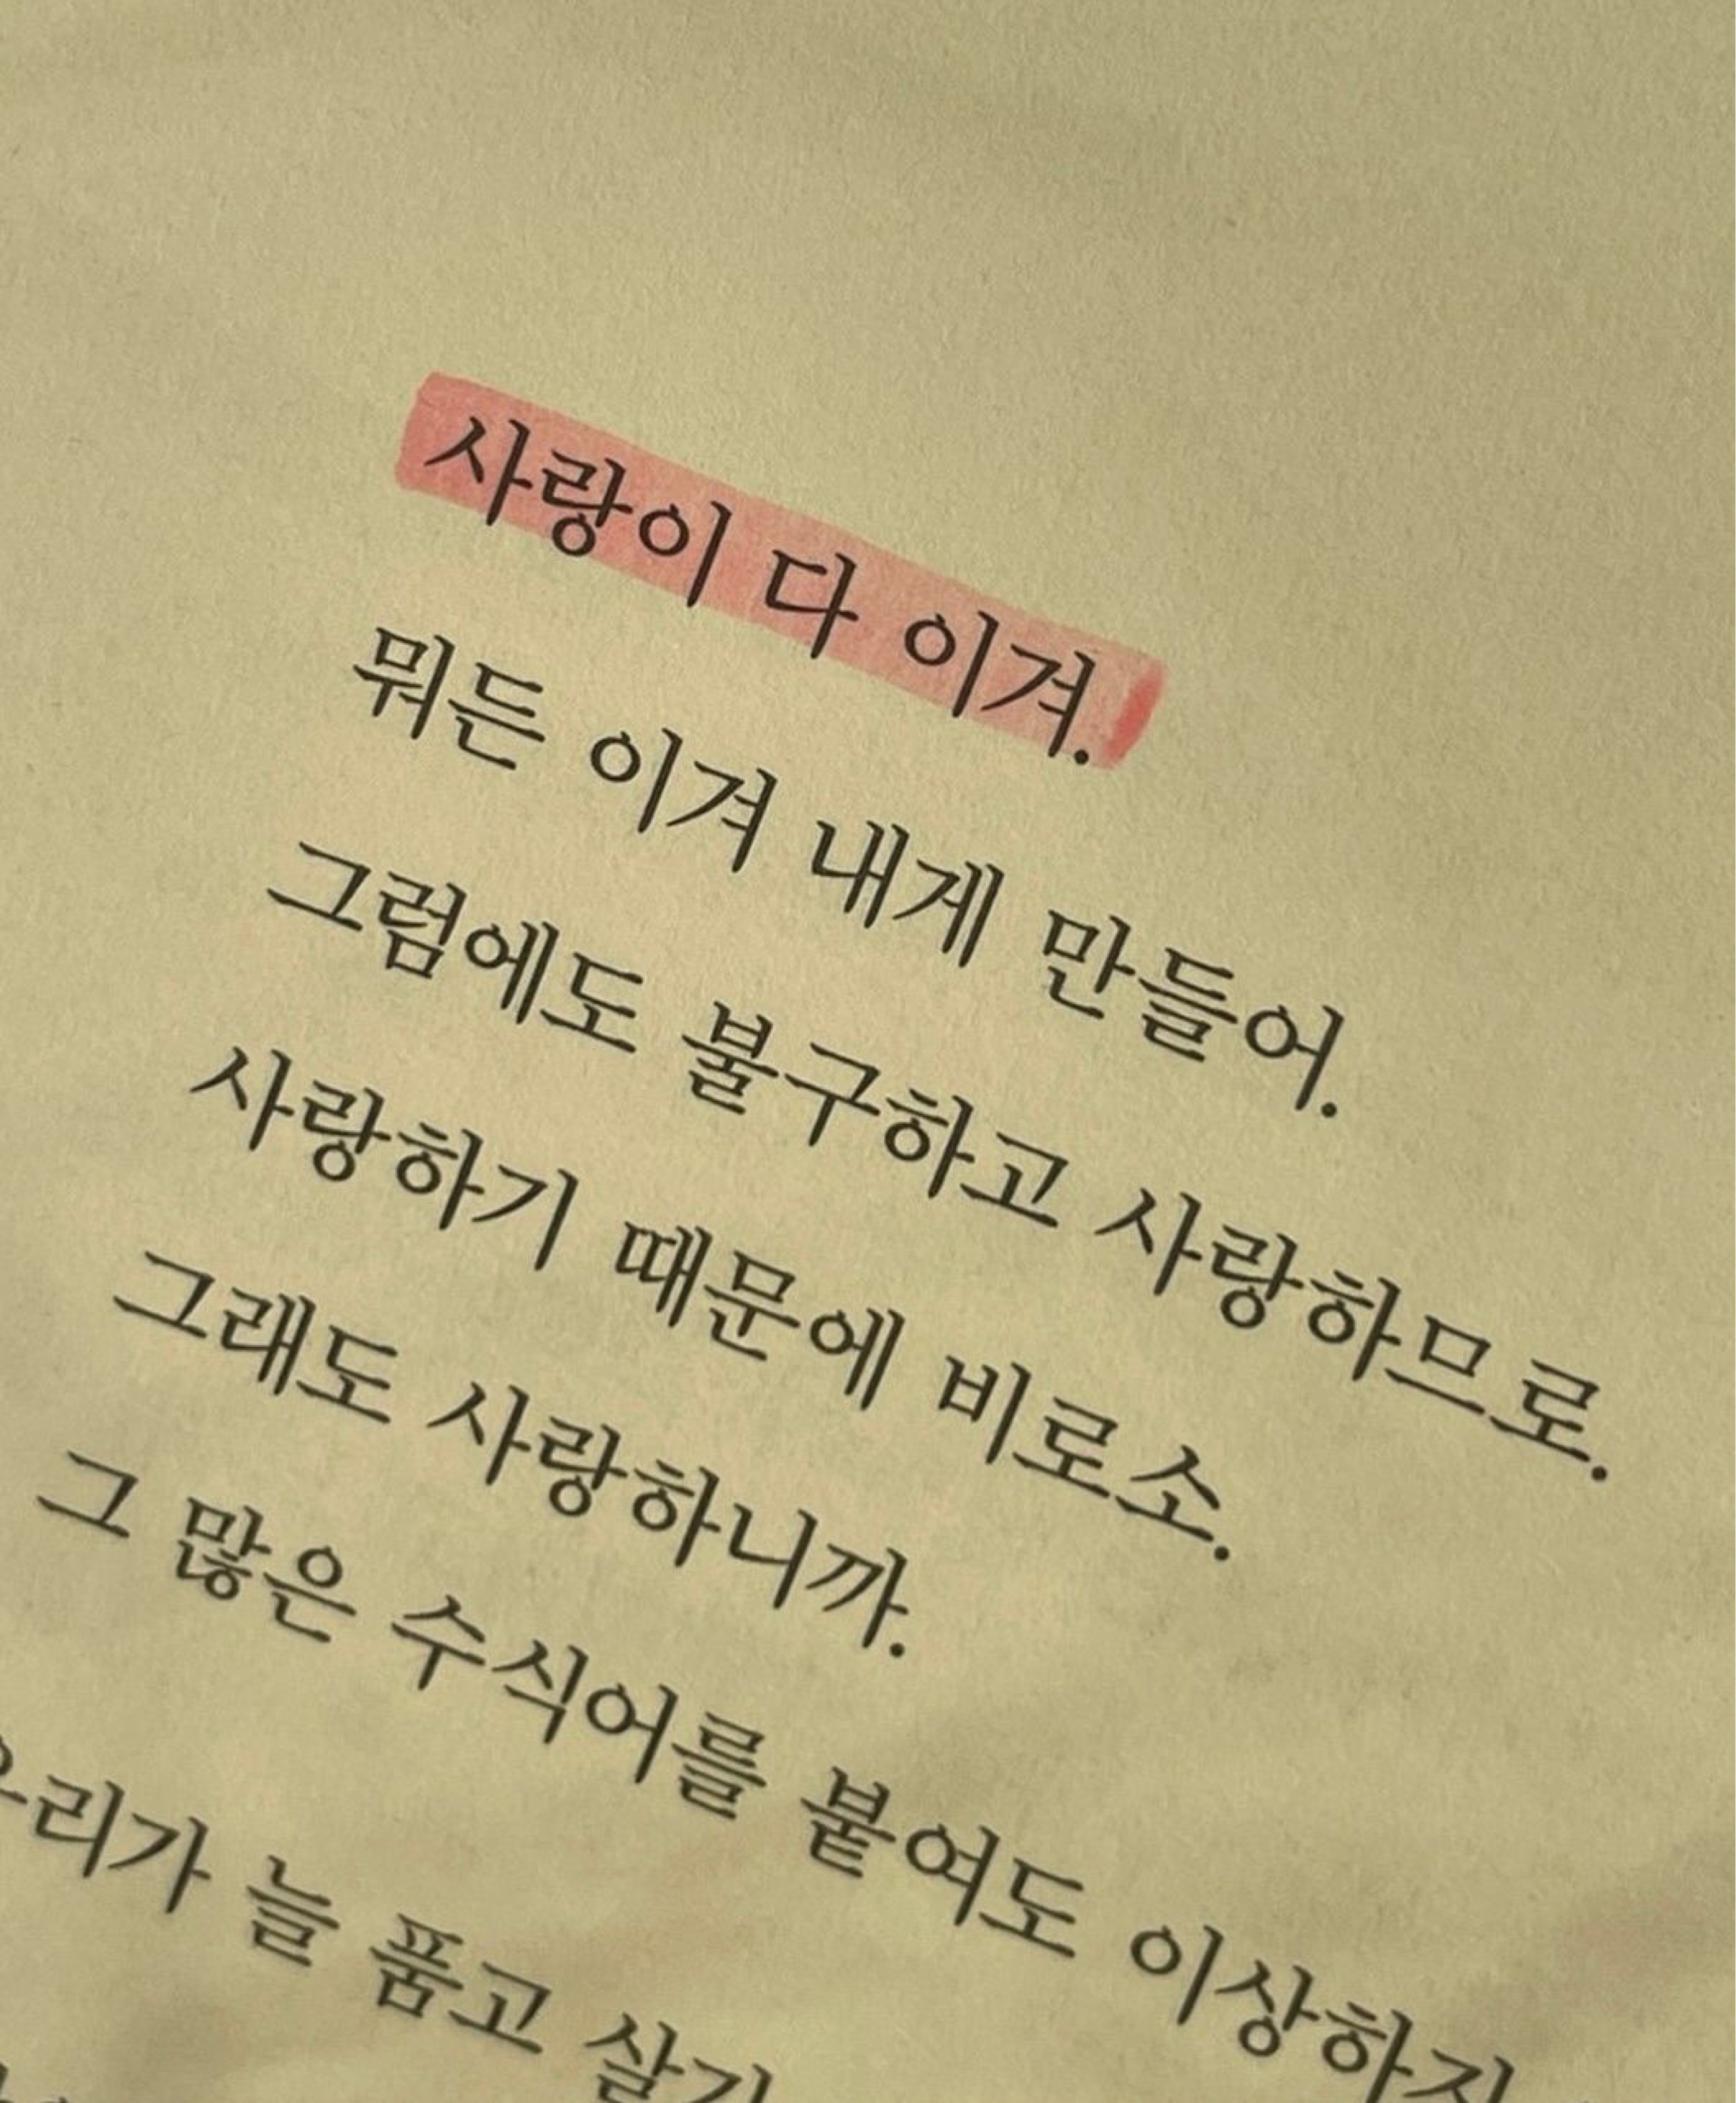 사랑이 다 이겨.
뭐든 이겨 내게 만들어.
그럼에도 불구하고 사랑하므로.
사랑하기 때문에 비로소.
그래도 사랑하니까.
그 많은 수식어를 붙여도 이상하지
우리가 늘 품고